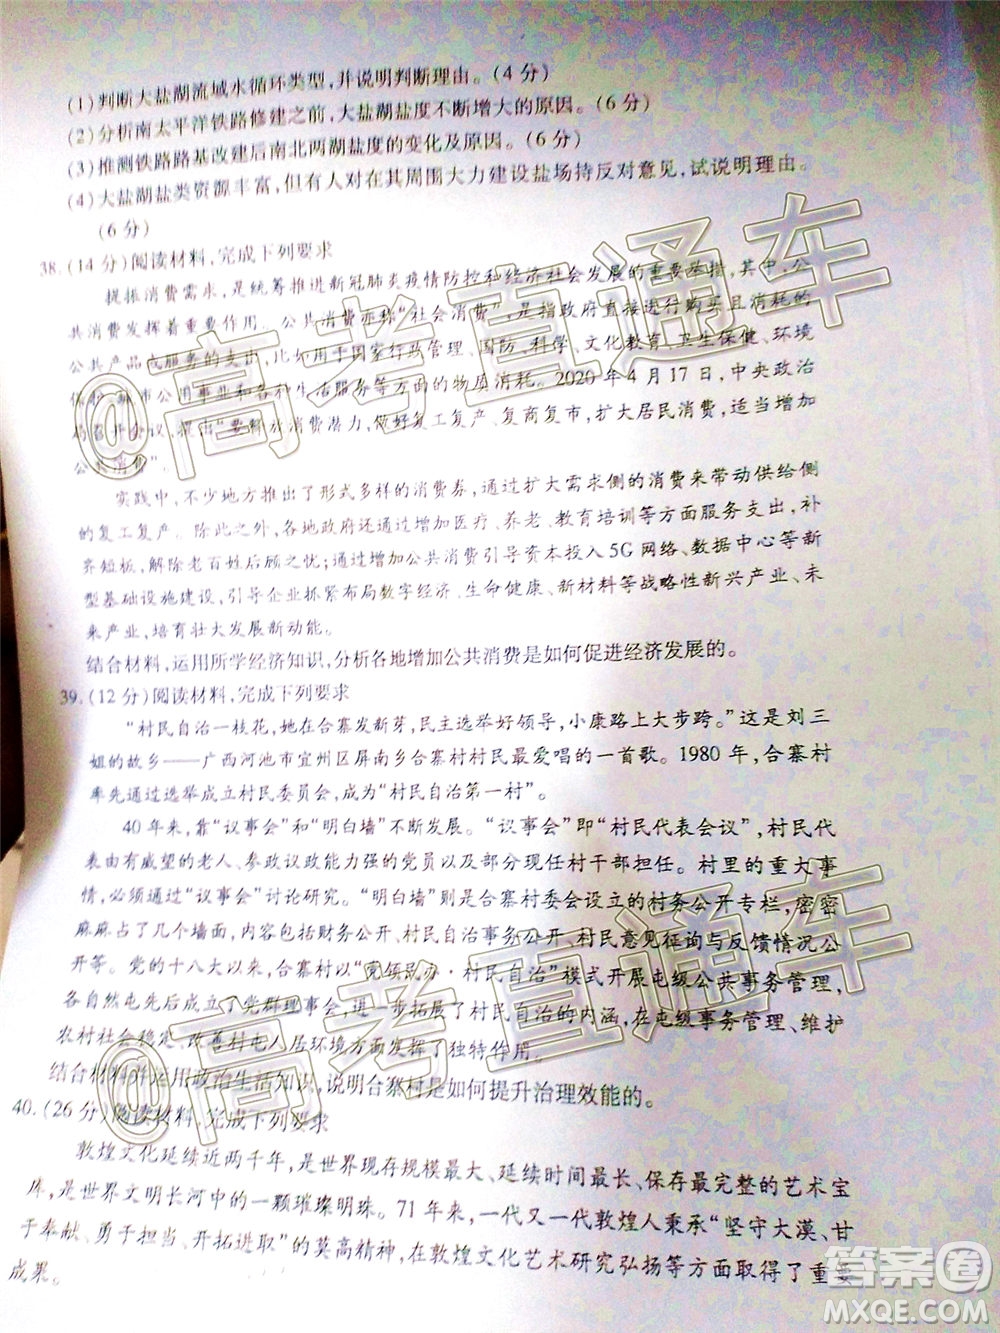 (1)判断大盐湖流域水循环类型,并说明判断理由。(4 分)
(2)分析南太平洋铁路修建之前,大盐湖盐度不断增大的原因。(6 分)
(3)推测铁路路基改建后南北两湖盐度的变化及原因。(6 分)
(4)大盐湖盐类资源丰富,但有人对在其周围大力建设盐场持反对意见,试说明理由。
(6 分)
38.(14 分)阅读材料,完成下列要求
提振消费需求,是统筹推进新冠肺炎疫情防控和经济社会发展的重要举措,其中,公
共消费发挥着重要作用。公共消费亦称“社会消费”,是指政府直接进行购买且消耗的
公共产品或服务的支出,比如用于国家行政管理、国防、科学、文化教育、卫生保健、环境
保护、城市公用事业和各种生活服务等方面的物质消耗。2020 年 4 月 17 日,中央政治
局召开会议,提出“要释放消费潜力,做好复工复产、复商复市,扩大居民消费,适当增加
公共消费”。
实践中,不少地方推出了形式多样的消费券,以扩大需求侧的消费来带动供给侧
的复工复产。除此之外,各地政府还通过增加医疗、养老、教育培训等方面服务支出,补
齐短板,解除老百姓后顾之忧;通过公共消费引导资本投入 5G 网络、数据中心等新
型基础设施建设,引导企业抓紧布局数字经济、生命健康、新材料等战略性新兴产业、未
来产业,培育壮大发展新动能。
结合材料,运用所学经济知识,分析各地增加公共消费是如何促进经济发展的。
39.(12 分)阅读材料,完成下列要求
“村民自治一枝花,她在合寨发新芽,民主选举好领导,小康路上大步跨。”这是刘三
姐的故乡——广西河池市宜州区屏南乡合寨村村民最爱唱的一首歌。1980 年,合寨村
率先通过选举成立村民委员会,成为“村民自治第一村”。
40 年来,靠“议事会”和“明白墙”不断发展。“议事会”即“村民代表会议”,村民代
表由有威望的老人、参政议政能力强的党员以及部分村干部担任。村里的重大事
情,必须通过“议事会”讨论研究。“明白墙”则是合寨村委会设立的村务公开专栏,密密
麻麻占了几个墙面,内容包括财务公开、村民自治事务公开、村民意见征询与反馈情况公
开等。党的十八大以来,合寨村以“党领民办·村民自治”模式开展屯级公共事务管理,
各自然屯先后成立了党群理事会,进一步拓展了村民自治的内涵,在屯级事务管理、维护
农村社会稳定、改善村屯人居环境方面发挥了独特作用。
结合材料并运用政治生活知识,说明合寨村是如何提升治理效能的。
40.(26 分)阅读材料,完成下列要求
敦煌文化延续近两千年,是世界现存规模最大、延续时间最长、保存最完整的艺术宝
库,是世界文明长河中的一颗璀璨明珠。71 年来,一代又一代敦煌人秉承“坚守大漠、甘
于奉献、勇于担当、开拓进取”的莫高精神,在敦煌文化艺术研究弘扬等方面取得了重要
成果。
@高考直通车
@高考直通车
答案圈
MXQE.COM